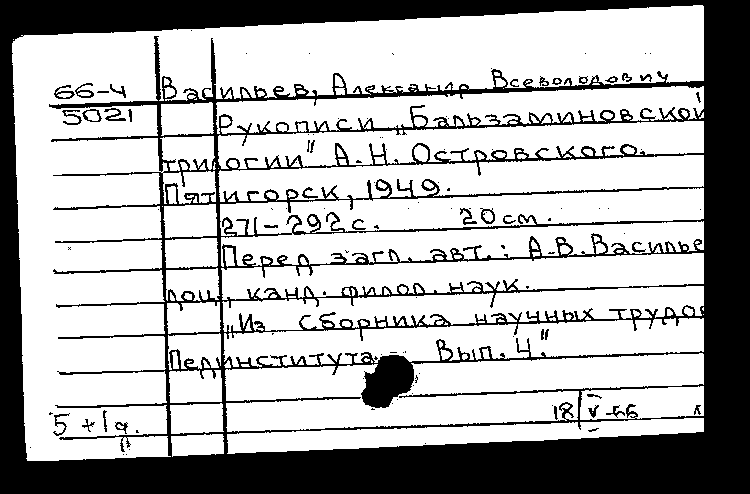 66-4 Васильев, Александр Всеволодович
5021 Рукописи „Бальзаминовской
трилогии" А.Н. Островского.
Пятигорск, 1949.
271-292 с. 20 см.
Перед загл. авт.: А.В. Василье
доц., канд. филол. наук.
„Из сборника научных трудов
Пединститута. Вып. 4."
5+1 д. 18/V-66